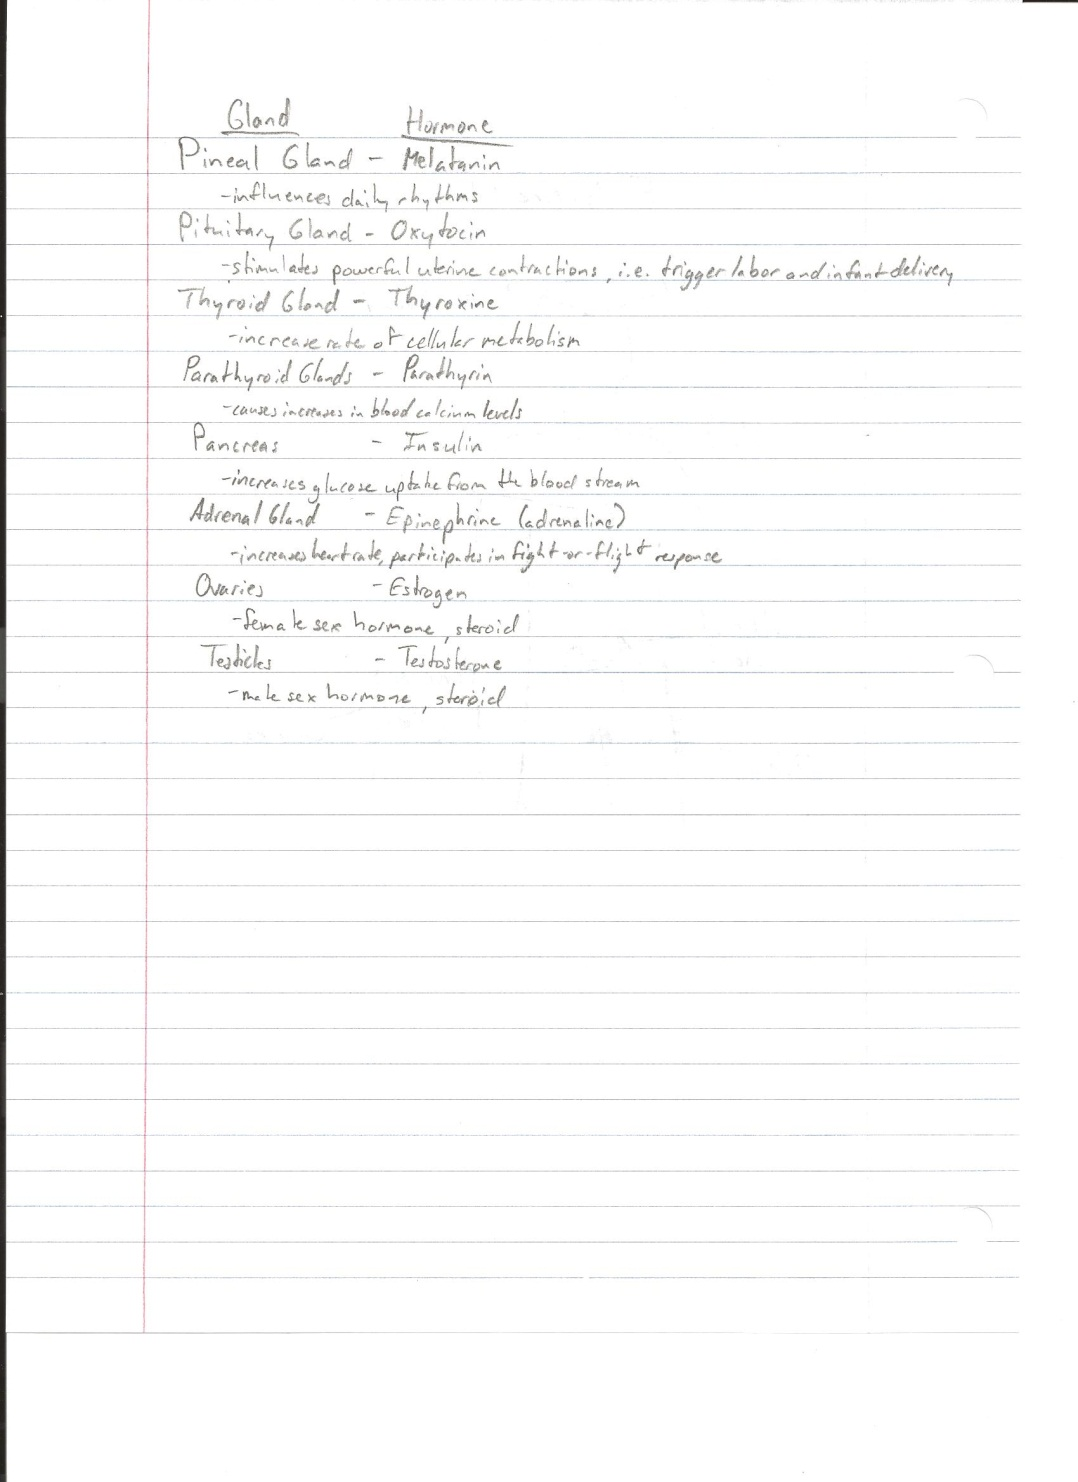 Gland Hormone
Pineal Gland - Melatanin
-influences daily rhythms
Pituitary Gland - Oxytocin
-stimulates powerful uterine contractions, i.e. trigger labor and infant delivery
Thyroid Gland - Thyroxine
-increase rate of cellular metabolism
Parathyroid Glands - Parathyrin
-causes increases in blood calcium levels
Pancreas - Insulin
-increases glucose uptake from the blood stream
Adrenal Gland - Epinephrine (adrenaline)
-increases heart rate, participates in fight-or-flight response
Ovaries - Estrogen
-female sex hormone, steroid
Testicles - Testosterone
-male sex hormone, steroid